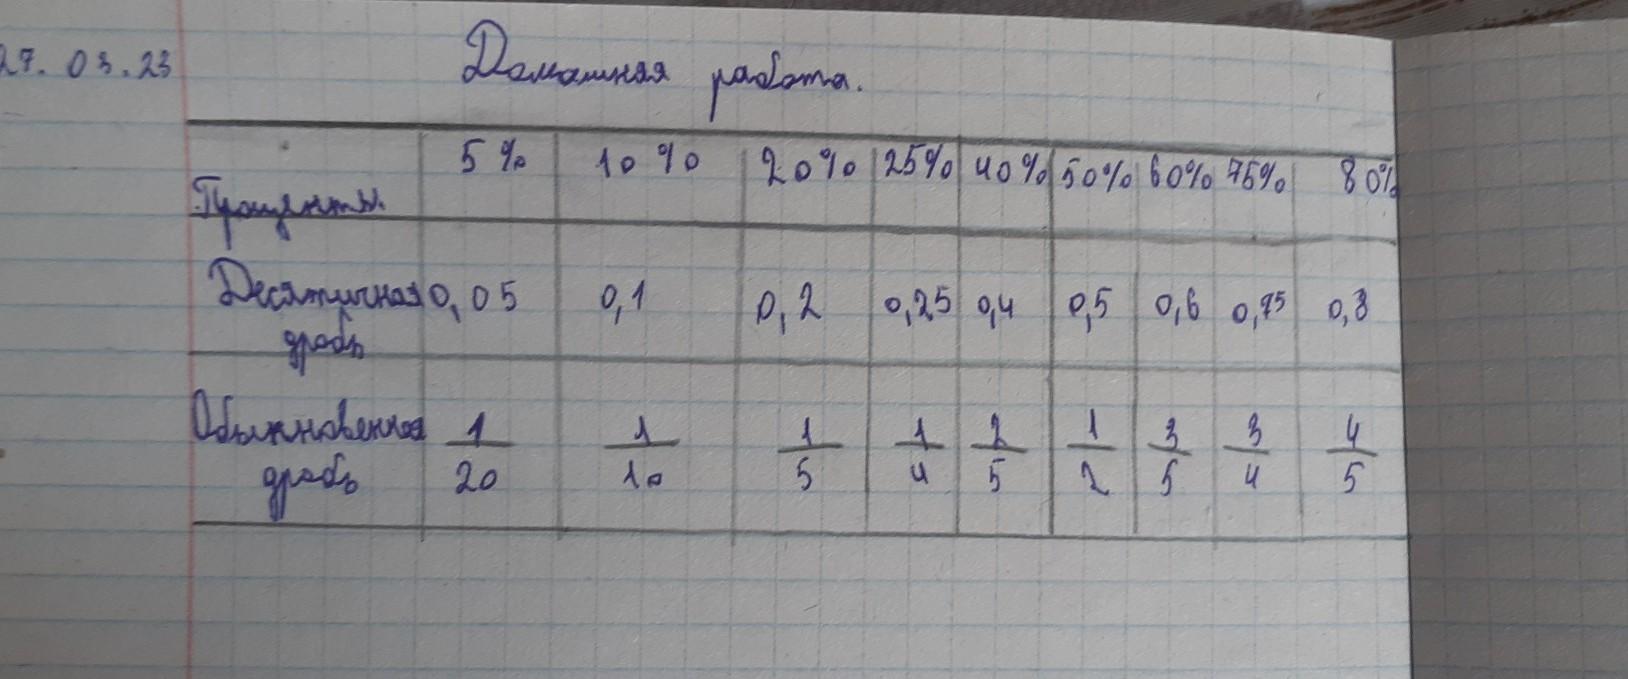 27. 03.23
Домашняя работа.
Проценты. 5% 10% 20% 25% 40% 50% 60% 75% 80%
Десятичная дробь 0,05 0,1 0,2 0,25 0,4 0,5 0,6 0,75 0,8
Обыкновенная дробь 1/20 1/10 1/5 1/4 2/5 1/2 3/5 3/4 4/5